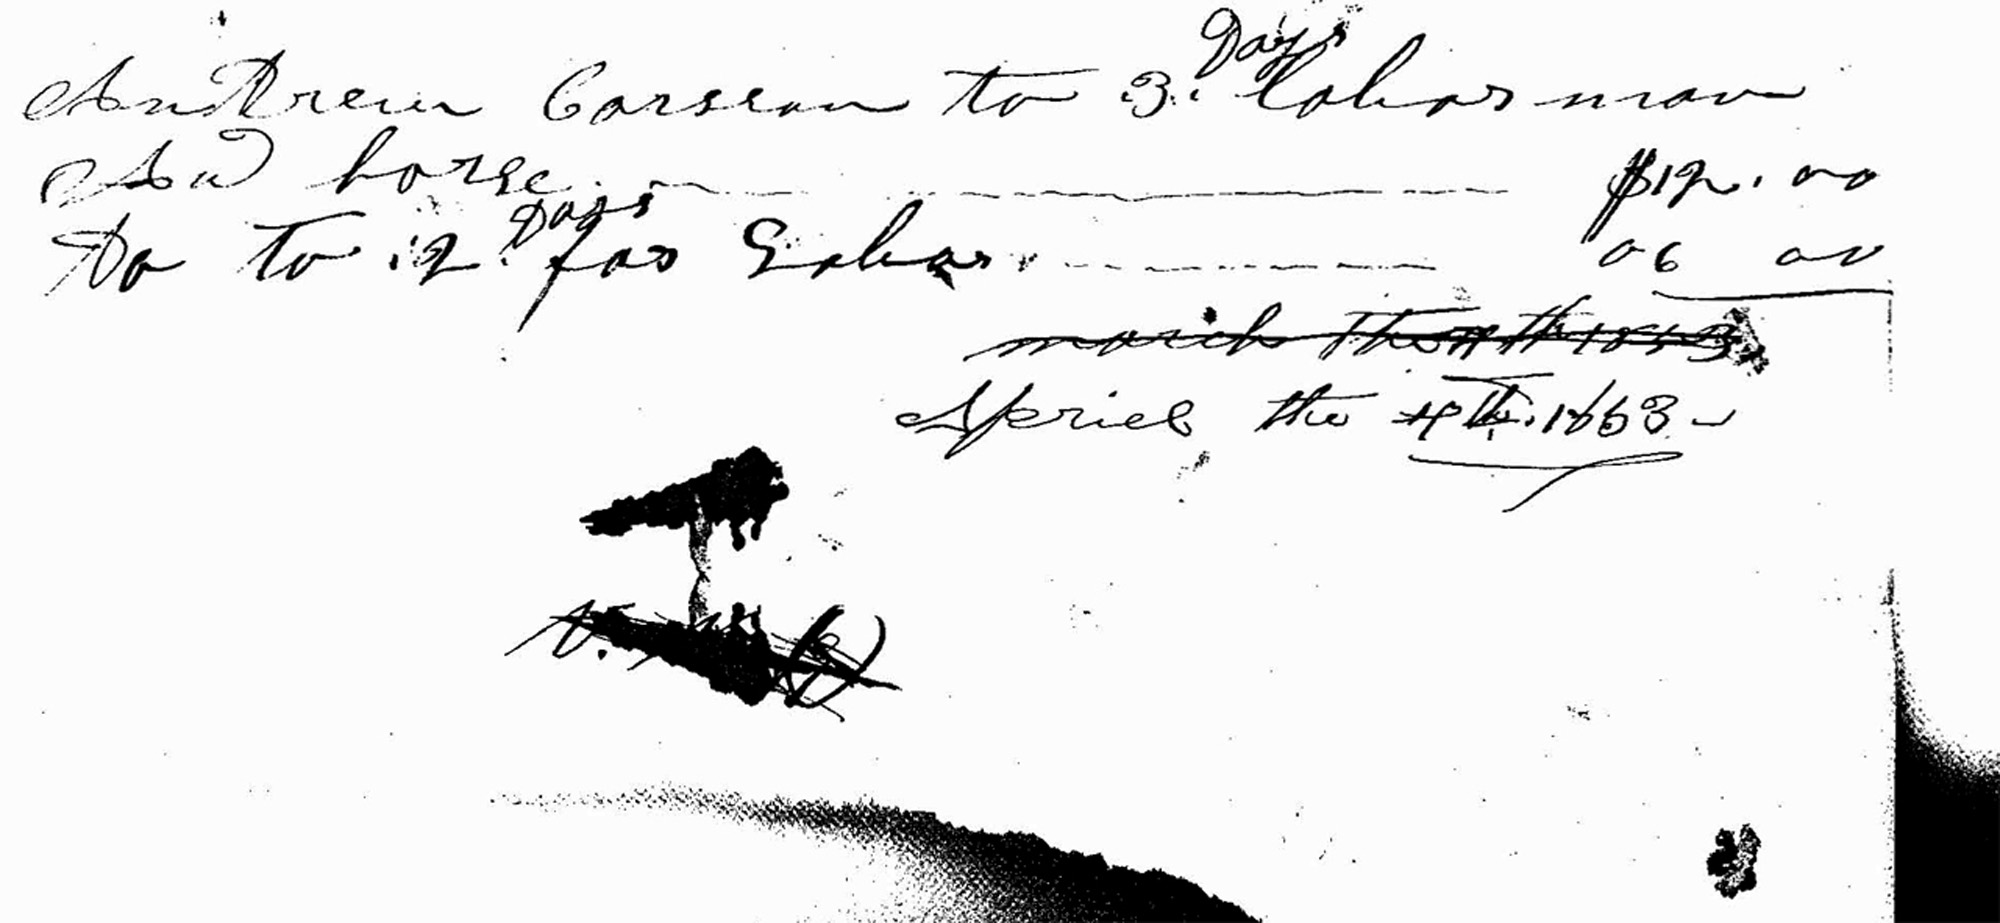 Andrew Carsean to 3. Days labar man
And horse. $12.00
Do to 2. Days far Labar 06 00
march the 4th 1853
Apriel the 4th. 1863